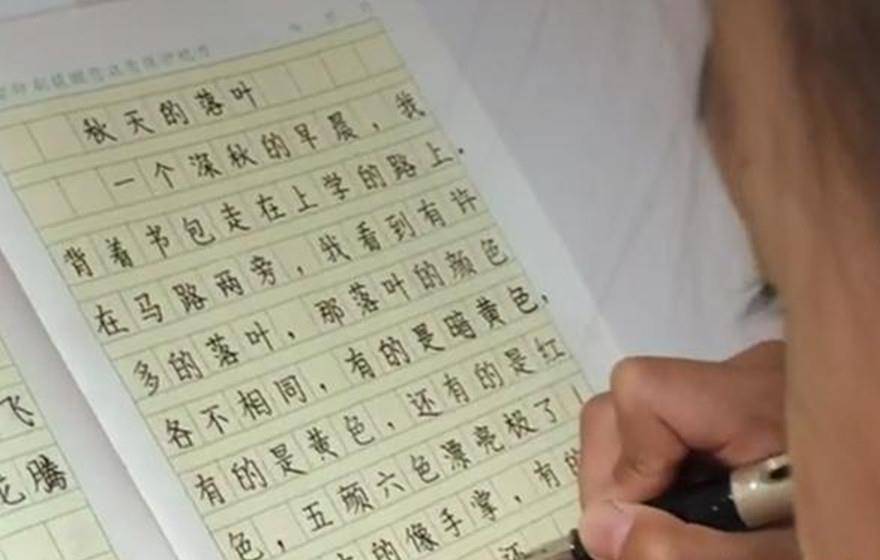 秋天的落叶
一个深秋的早晨，我
背着书包走在上学的路上.
在马路两旁，我看到有许
多的落叶，那落叶的颜色
各不相同，有的是暗黄色，
有的是黄色，还有的是红
色，五颜六色漂亮极了！
的像手掌，有的
还
飞
花腾